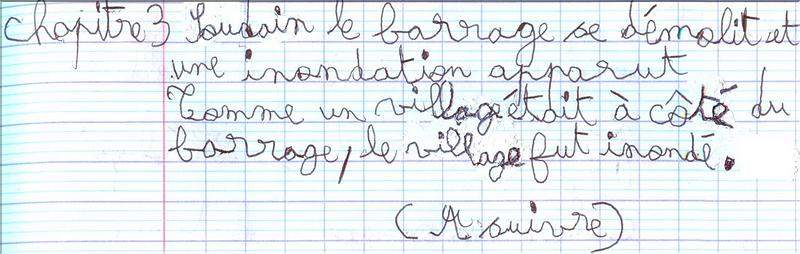 Chapitre 3 Soudain le barrage se démolit et
une inondation apparut
Comme un village était à côté du
barrage, le village fut inondé.
(A suivre)